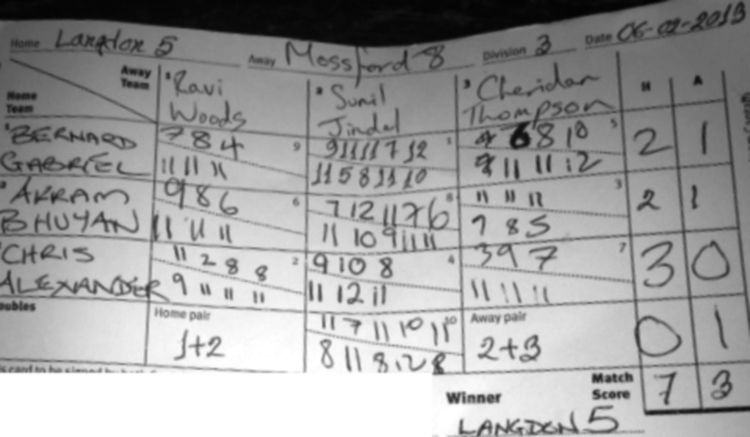 Home Langdon 5 Away Mossford 8 Division 3 Date 06-02-2019
Away Team 1 Ravi Woods 2 Sunil Jindal 3 Cheridan Thompson H A
Home Team
1 BERNARD 7 8 4 9 9 11 11 7 12 1 4 6 8 10 5 2 1
GABRIEL 11 11 11 11 5 8 11 10 9 11 11 12
2 AKRAM 9 8 6 6 7 12 11 7 6 8 11 11 11 3 2 1
BHUYAN 11 11 11 11 10 9 11 11 7 8 5
3 CHRIS 11 2 8 8 2 9 10 8 4 3 9 7 7 3 0
ALEXANDER 9 11 11 11 11 12 11 11 11 11
Doubles Home pair 11 7 11 10 11 10 Away pair 0 1
1+2 8 11 8 12 8 2+3
Winner Match Score 7 3
LANGDON 5